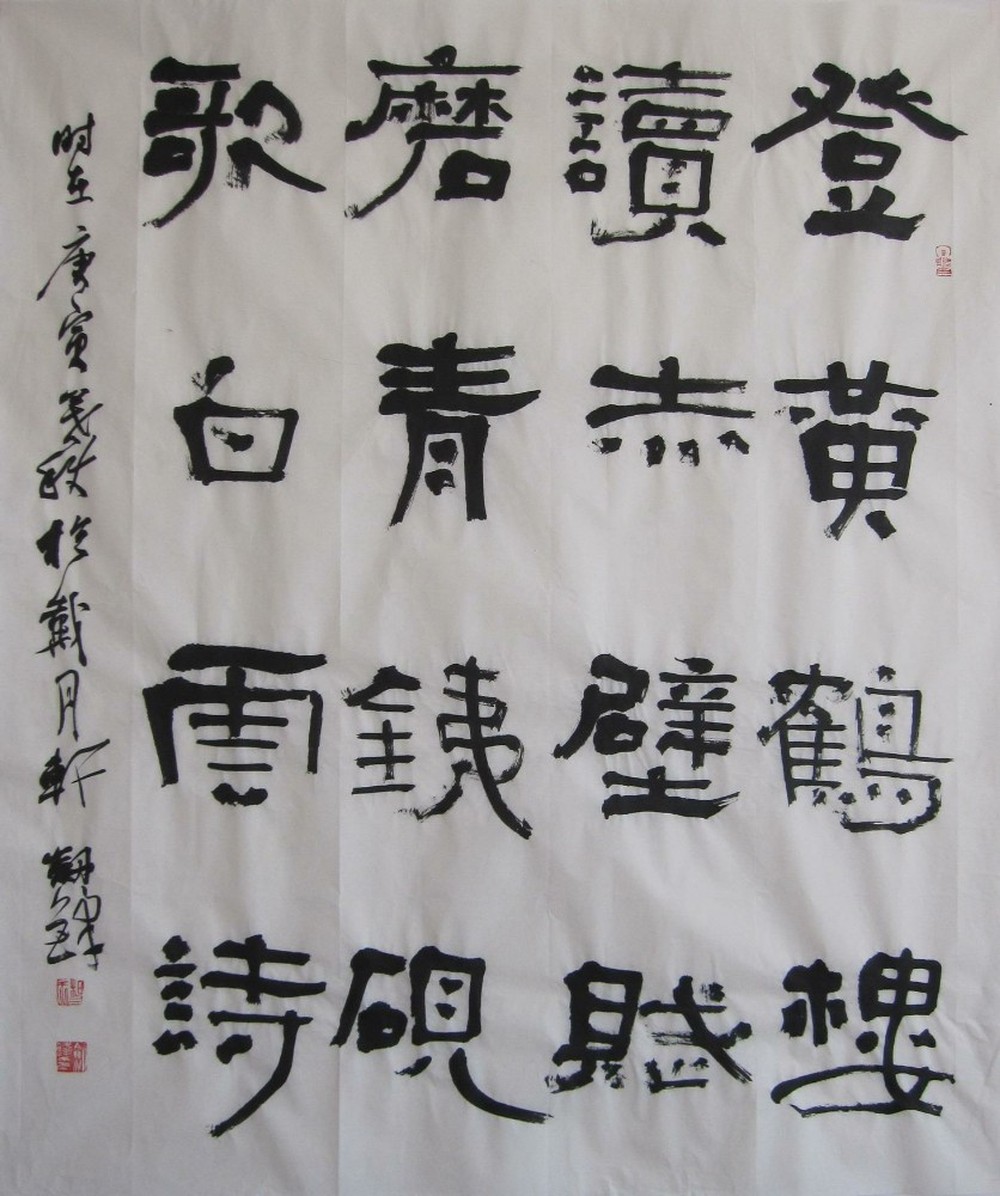 登黄鶴樓
讀赤壁賦
磨青銕硯
歌白雲詩
时在庚寅美秋於戴月軒